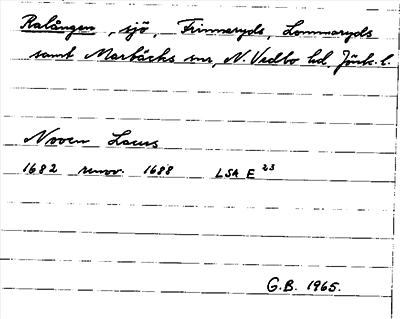 Ralången, sjö, Frinnaryds, Lommaryds
samt Marbäcks snr, N. Vedbo hd, Jönk. l.
Noven Lacus
1682 renov. 1688 LSA E 23
G.B. 1965.